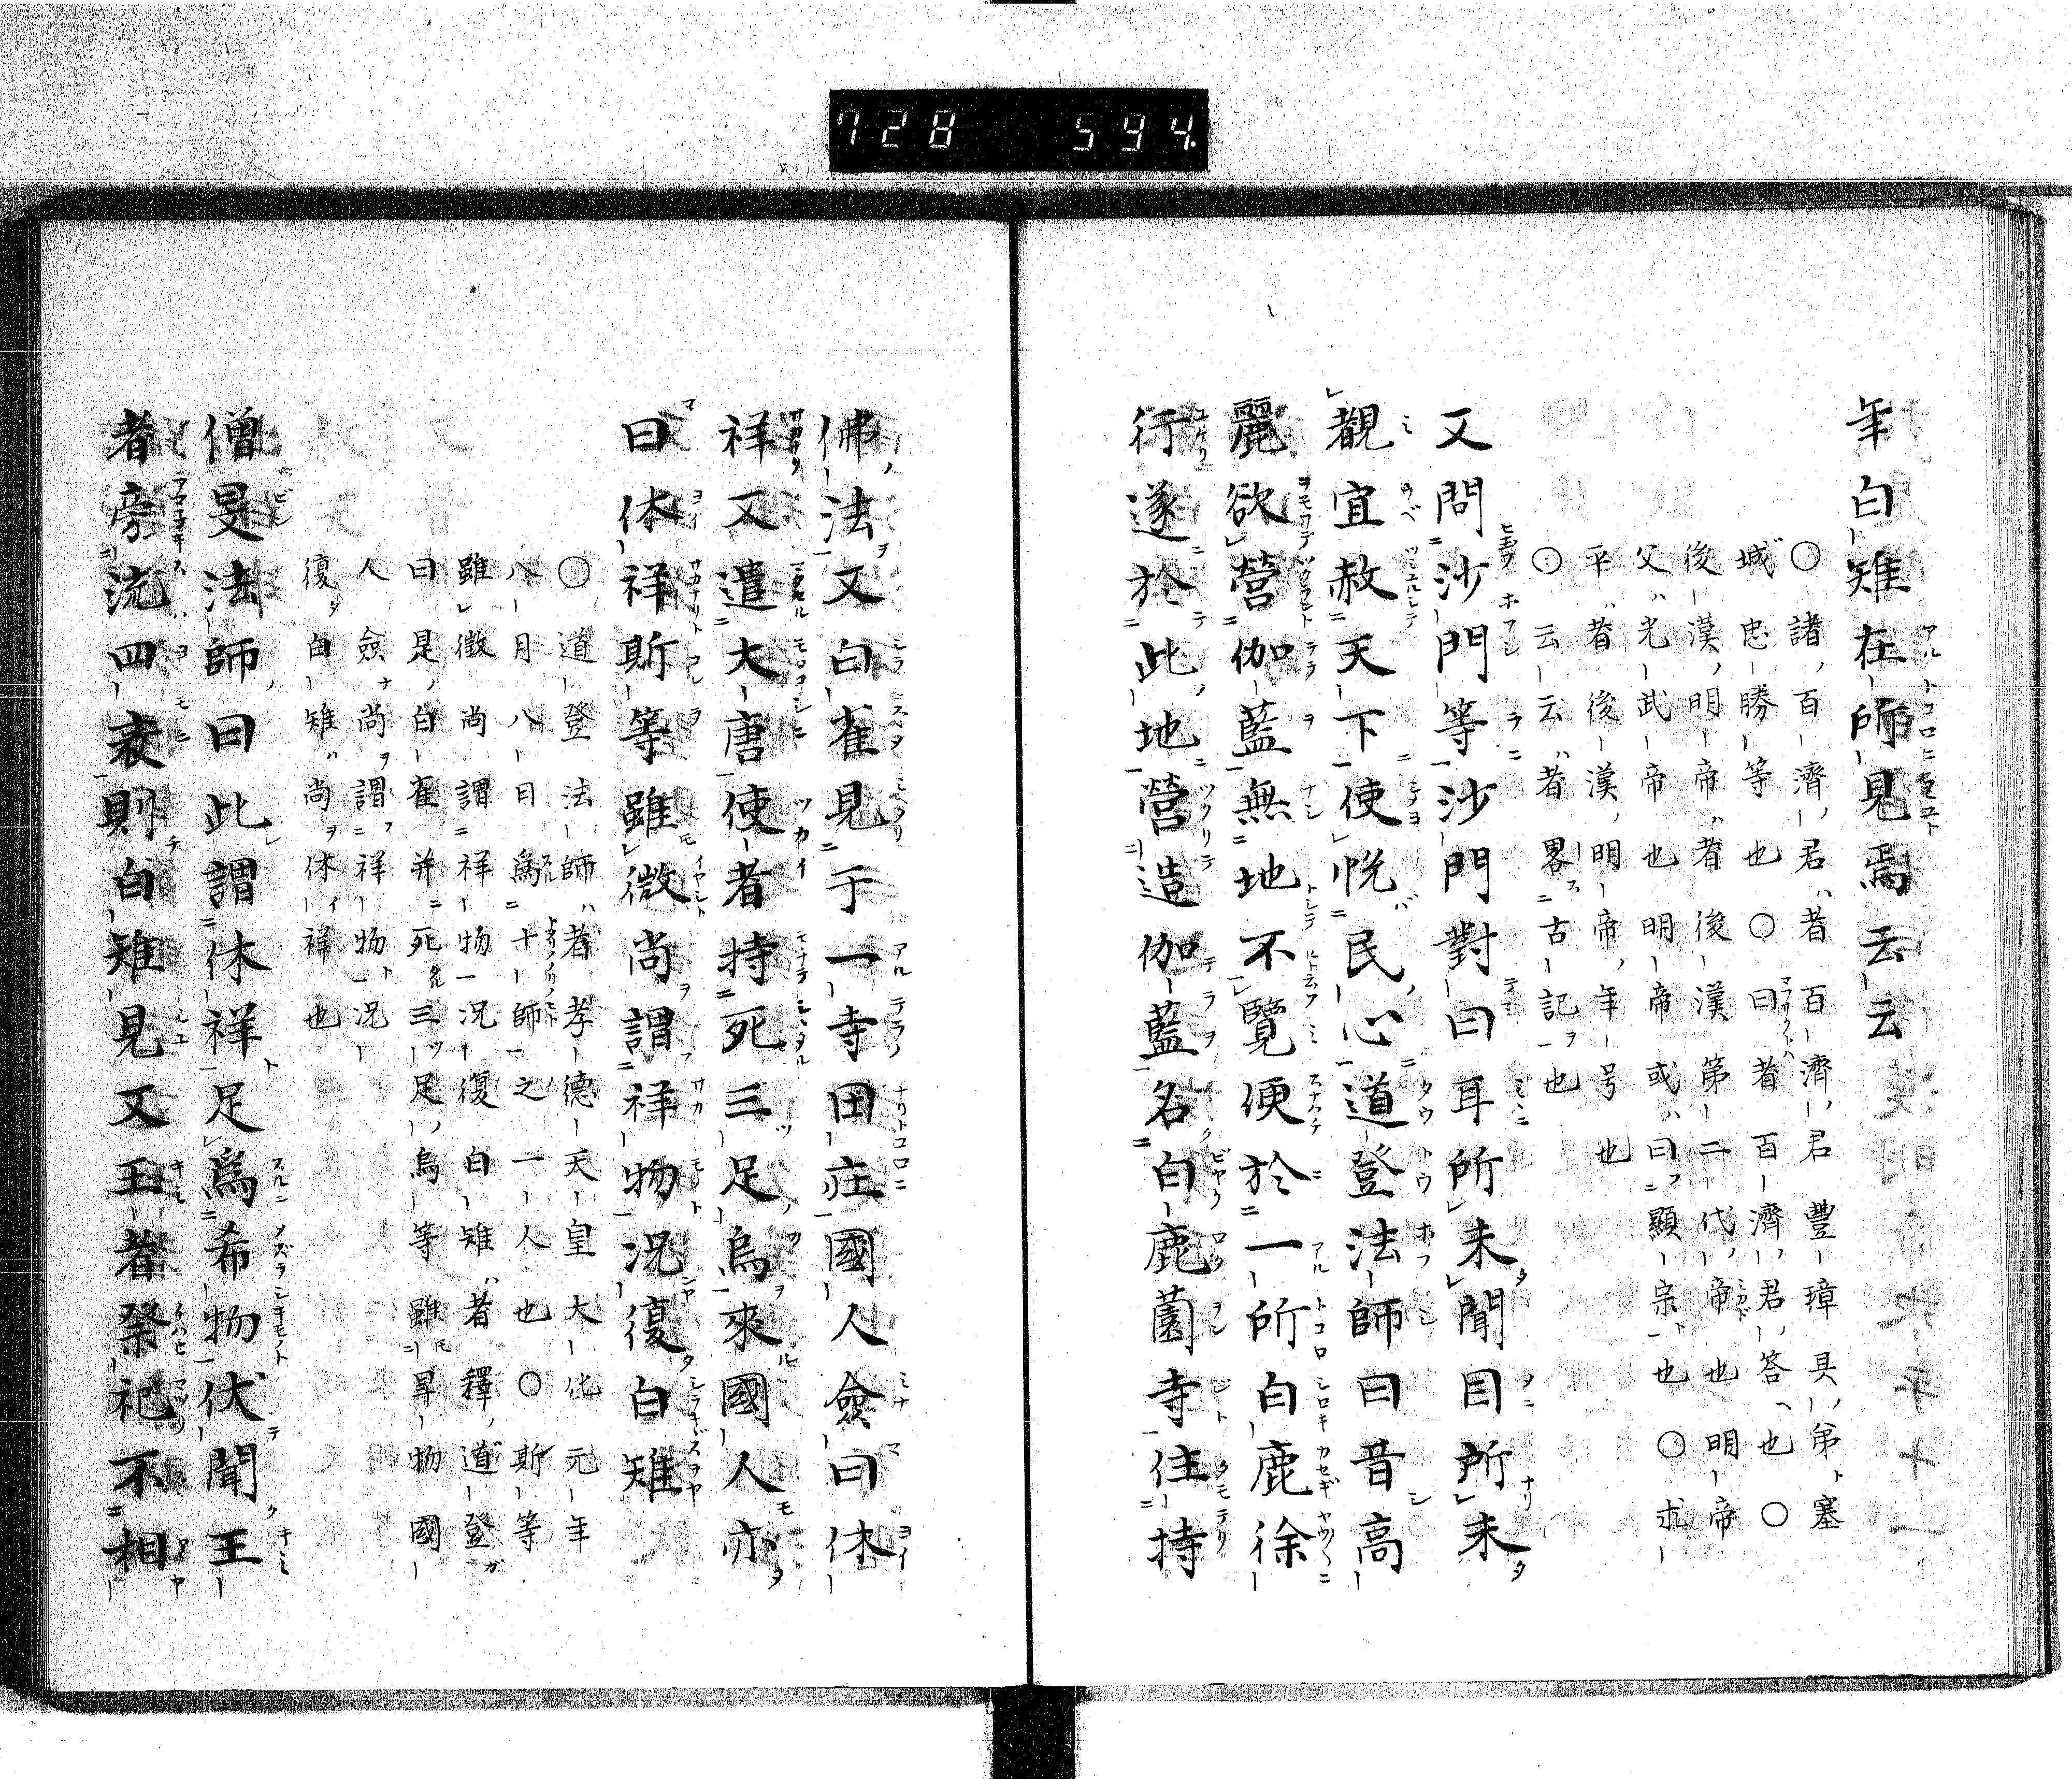 728 594
年白雉在所見焉云云
○諸百濟君者百濟君豐璋具弟塞
城忠勝等也○曰者百濟君答也○
後漢明帝者後漢第二代帝也明帝
父光武帝也明帝或曰顯宗也○求
平者後漢明帝年号也
○云云者畧古記也
又問沙門等沙門對曰耳所未聞目所未
覩宜赦天下使悅民心道登法師曰昔高
麗欲營伽藍無地不覽便於一所白鹿徐
行遂於此地營造伽藍名白鹿薗寺住持
佛法又白雀見于一寺田庄國人僉曰休
祥又遣大唐使者持死三足烏來國人亦
曰休祥斯等雖微尚謂祥物況復白雉
○道登法師者孝德天皇大化元年
八月八日爲十師之一人也○斯等
雖徵尚謂祥物況復白雉者釋道登
曰是白雀并死三足烏等雖畀物國
人僉尚謂祥物況
復白雉尚休祥也
僧旻法師曰此謂休祥足爲希物伏聞王
者旁流四表則白雉見又王者祭祀不相